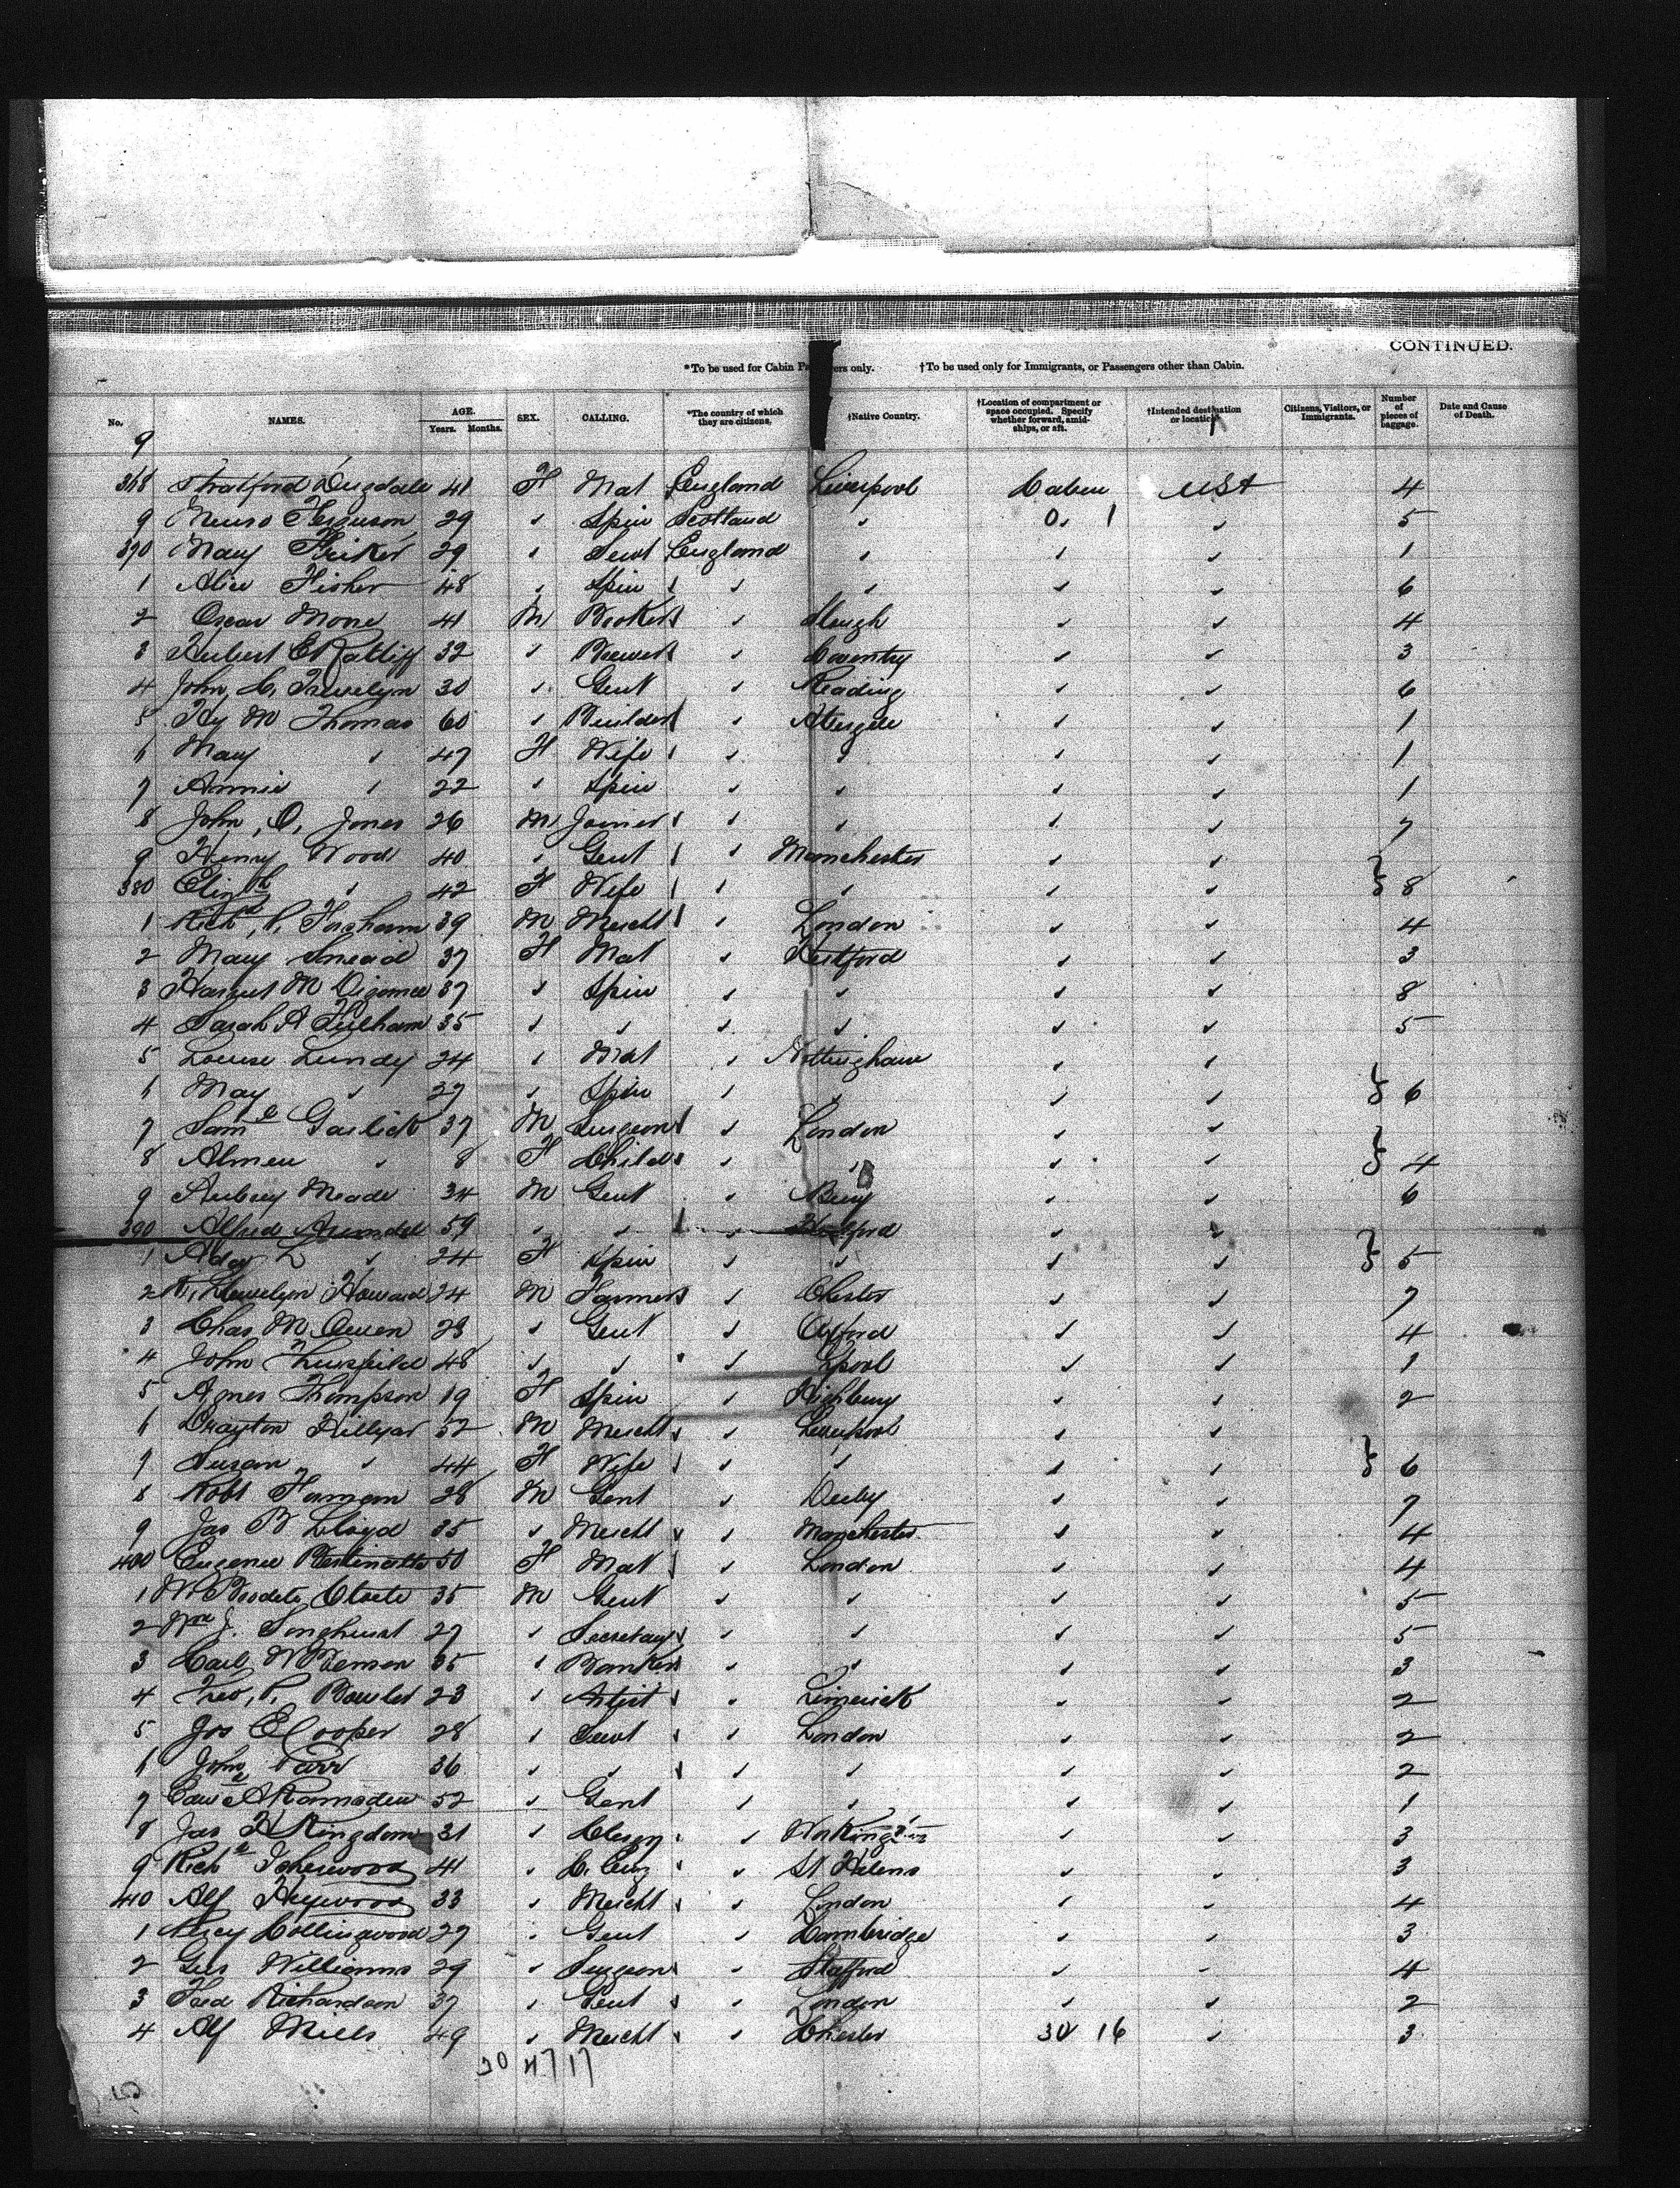 CONTINUED.
*To be used for Cabin Pa ers only. †To be used only for Immigrants, or Passengers other than Cabin.
No. NAMES. AGE. Years. Months. SEX. CALLING. *The country of which they are citizens. †Native Country. †Location of compartment or space occupied. Specify whether forward, amidships, or aft. †Intended destination or location. Citizens, Visitors, or Immigrants. Number of pieces of baggage. Date and Cause of Death.
9
368 Stratford Dugdale 41 F Mat England Liverpool Cabin USA 4
9 Munro Ferguson 29 " Spin Scotland " 0 1 " 5
370 Mary Friker 29 " Servt England " " " 1
1 Alice Fisher 48 " Spin " " " " 6
2 Oscar Mone 41 M Booker " Slough " " 4
3 Hubert E Ratliff 32 " Brewer " Coventry " " 3
4 John C. Trevelyn 30 " Gent " Reading " " 6
5 Hy M Thomas 60 " Builder " " " 1
6 Mary " 47 F Wife " " " " 1
7 Annie " 22 " Spin " " " " 1
8 John, O, Jones 26 M Joiner " " " " 7
9 Henry Wood 40 " Gent " Manchester " "
380 Elizth " 42 F Wife " " " " } 8
1 Richd, P, Forsham 39 M Mercht " London " " 4
2 Mary Snead 37 F Mat Hertford " " 3
3 Harriet M 37 " Spin " " " " 8
4 Sarah A Fulham 35 " " " " " " 5
5 Louise Lundy 24 " Mat " Nottingham " "
6 May " 27 " Spin " " " " } 6
7 Saml Garlick 37 M Surgeon " London " "
8 " 8 F Child " " " " } 4
9 Aubrey Meade 34 M Gent " Bury " " 6
390 Alfred Arundel 59 " " " " "
1 Ada L " 24 F Spin " " " " } 5
2 Llewelyn Howard 24 M Farmer " Chester " " 7
3 Chas M Owen 23 " Gent " Oxford " " 4
4 John 48 " " " Lpool " " 1
5 Agnes Thompson 19 F Spin " Highbury " " 2
6 Drayton Hillyar 52 M Mercht " Liverpool " "
7 Susan " 44 F Wife " " " " } 6
8 Robt Forman 28 M Gent " Derby " " 7
9 Jas B Lloyd 35 " Mercht " Manchester " " 4
400 Eugenie 50 F Mat " London " " 4
1 W Cloete 35 M Gent " " " " 5
2 Wm J. Songhurst 27 " Secretary " " " " 5
3 Carl 35 " Banker " " " " 3
4 Fred, P, Bowles 23 " Artist " Limerick " " 2
5 Jos E Cooper 28 " Servt " London " " 2
6 John Parr 36 " " " " " " 2
7 A Ramsden 52 " Gent " " " " 1
8 Jas H Kingdom 31 " Clergy " " " 3
9 Richd Isherwood 41 " C. Eng " St Helens " " 3
410 Alf Heywood 33 " Mercht " London " " 4
1 Collingwood 27 " Gent " Cambridge " " 3
2 Geo Williams 29 " Surgeon " Stafford " " 4
3 Fred Richardson 37 " Gent " London " " 2
4 Alf Mills 49 " Mercht " Chester 30 16 " 3
30 47 17